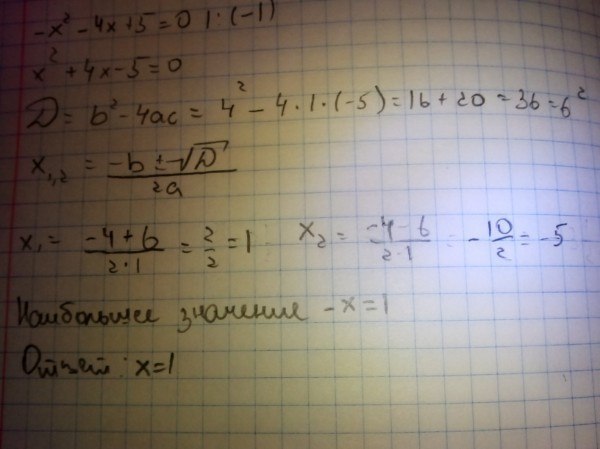 -x² - 4x + 5 = 0 | : (-1)
x² + 4x - 5 = 0
D = b² - 4ac = 4² - 4 · 1 · (-5) = 16 + 20 = 36 = 6²
x₁,₂ = (-b ± √D) / 2a
x₁ = (-4 + 6) / (2 · 1) = 2/2 = 1 x₂ = (-4 - 6) / (2 · 1) = -10/2 = -5
Наибольшее значение - x = 1
Ответ: x = 1